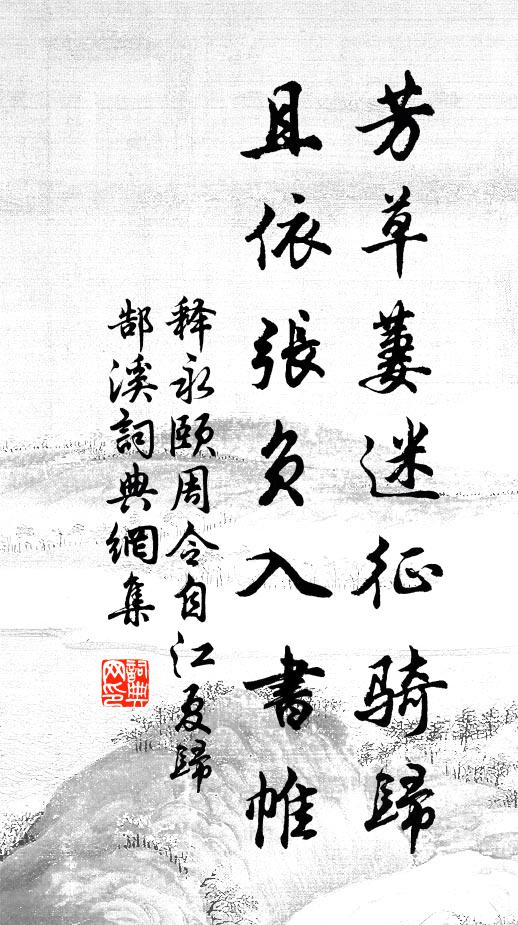 芳草萋迷征骑歸
且依張负入書帷
释永颐周令自江夏歸
溪詞典網集
詞典网印